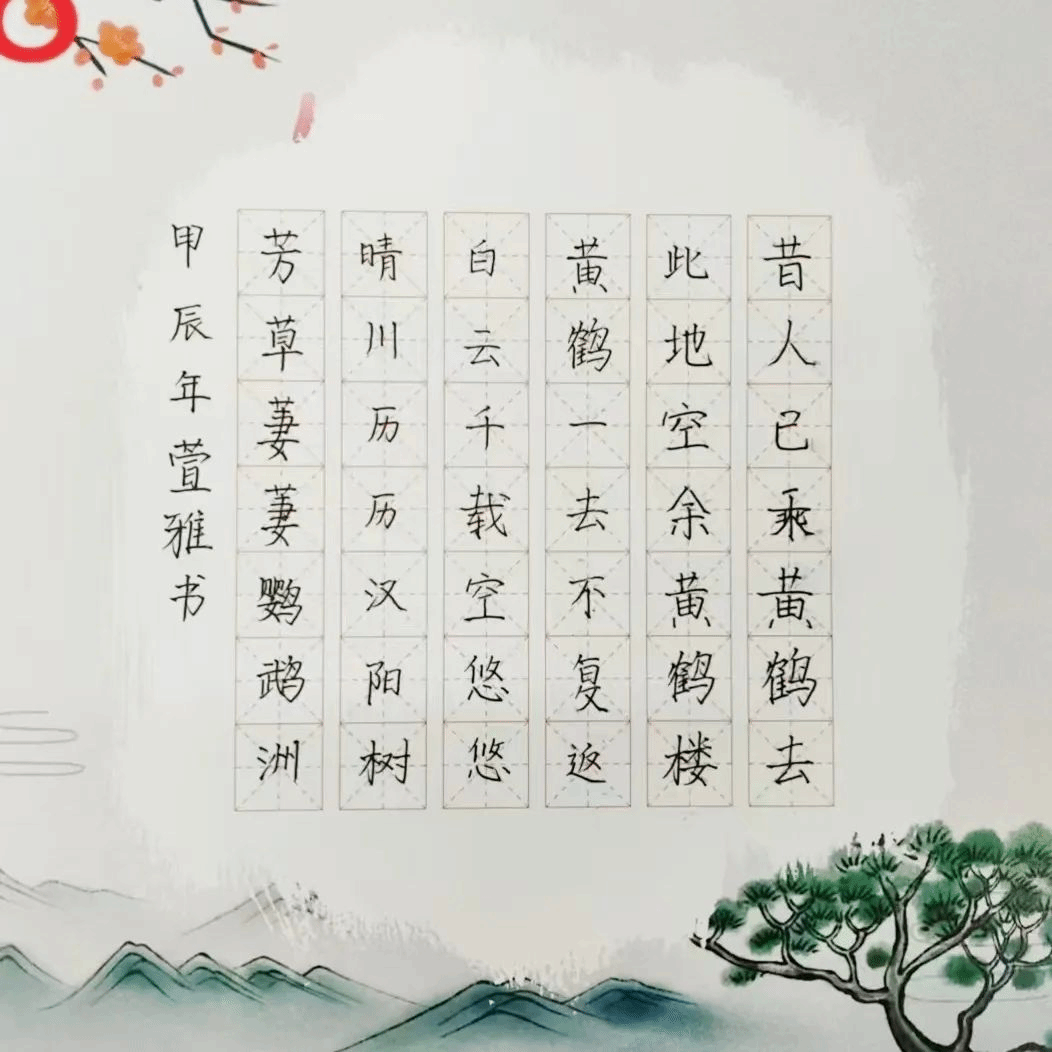 昔人已乘黄鹤去
此地空余黄鹤楼
黄鹤一去不复返
白云千载空悠悠
晴川历历汉阳树
芳草萋萋鹦鹉洲
甲辰年萱雅书